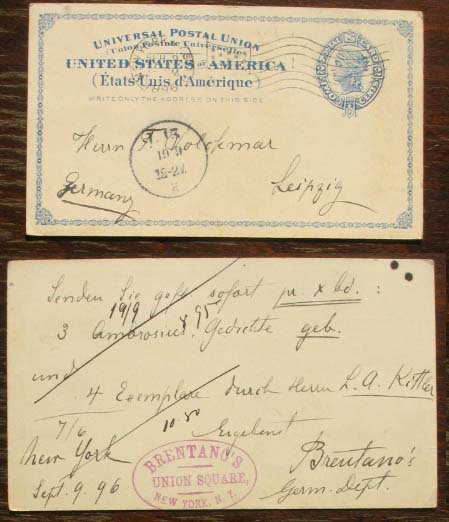 UNIVERSAL POSTAL UNION
(Union Postale Universelle)
UNITED STATES OF AMERICA
(États-Unis d'Amérique)
WRITE ONLY THE ADDRESS ON THIS SIDE
TWO CENTS
Herrn F. Volckmar
Leipzig
Germany
19 9
Senden Sie gefl. sofort pr. x bd. :
19/9 95
3 Ambrosius, Gedichte geb.
und
4 Exemplare durch Herrn L. A. Kittler
7/6
Ergebenst
New York
Brentano's
Sept. 9. 96
Germ. Dept.
BRENTANO'S
UNION SQUARE,
NEW YORK, N. Y.